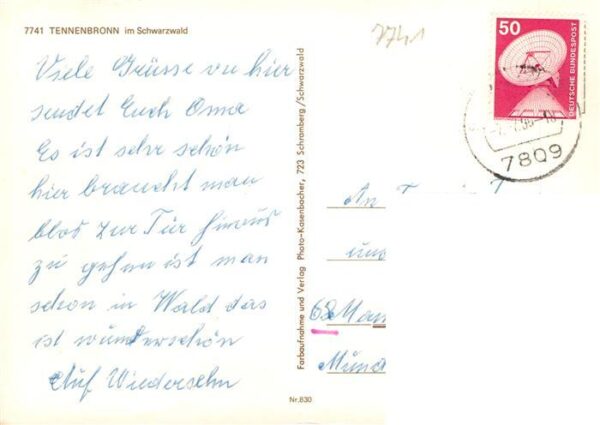 7741 TENNENBRONN im Schwarzwald
7741
Viele Grüsse von hier
sendet Euch Oma
Es ist sehr schön
hier braucht man
blos zur Tür hinaus
zu gehen ist man
schon in Wald das
ist wunderschön
Auf Wiedersehn
Farbaufnahme und Verlag Photo-Kasenbacher, 723 Schramberg/Schwarzwald
Nr.830
50
DEUTSCHE BUNDESPOST
7809
An
und
68 Man
Münd